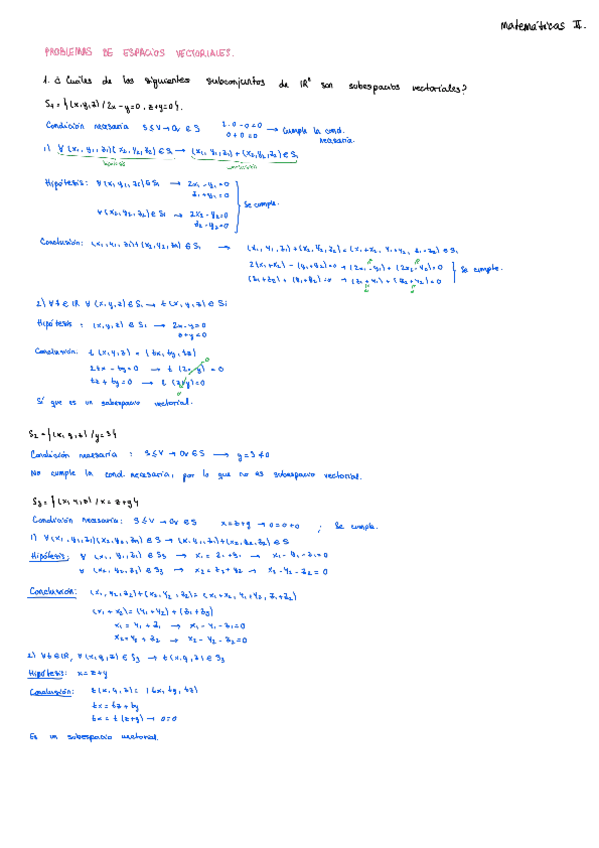 Matemáticas II.
PROBLEMAS DE ESPACIOS VECTORIALES.
1. ¿ Cuáles de los siguientes subconjuntos de IR³ son subespacios vectoriales?
S₁ = { (x,y,z) / 2x-y=0, z+y=0 }.
Condición necesaria S≤V → 0v ∈ S 2·0-0=0 → Cumple la cond.
0+0=0 necesaria.
1) ∀ (x₁, y₁, z₁)(x₂, y₂, z₂) ∈ S₁ → (x₁, y₁, z₁)+(x₂, y₂, z₂) ∈ S₁
hipótesis conclusión
Hipótesis: ∀ (x₁, y₁, z₁) ∈ S₁ → 2x₁-y₁=0
z₁+y₁=0
Se cumple.
∀ (x₂, y₂, z₂) ∈ S₁ → 2x₂-y₂=0
z₂-y₂=0
Conclusión: (x₁, y₁, z₁)+(x₂, y₂, z₂) ∈ S₁ → (x₁, y₁, z₁)+(x₂, y₂, z₂)=(x₁+x₂, y₁+y₂, z₁+z₂) ∈ S₁
2(x₁+x₂) - (y₁+y₂)=0 → (2x₁-y₁) + (2x₂-y₂)=0
(z₁+z₂) + (y₁+y₂)=0 → (z₁+y₁) + (z₂+y₂)=0 Se cumple.
2) ∀ t ∈ IR ∀ (x,y,z) ∈ S₁ → t (x,y,z) ∈ S₁
Hipótesis : (x,y,z) ∈ S₁ → 2x-y=0
z+y=0
Conclusión: t (x,y,z) = (tx, ty, tz)
2tx - ty=0 → t (2x-y) = 0
tz + ty=0 → t (z+y)=0
Sí que es un subespacio vectorial.
S₂ = { (x, y, z) / y=3 }
Condición necesaria : S≤V → 0v ∈ S → y=3≠0
No cumple la cond. necesaria, por lo que no es subespacio vectorial.
S₃ = { (x, y, z) / x = z+y }
Condición necesaria: S≤V → 0v ∈ S x=z+y → 0=0+0 ; Se cumple.
1) ∀ (x₁, y₁, z₁)(x₂, y₂, z₂) ∈ S → (x₁, y₁, z₁)+(x₂, y₂, z₂) ∈ S
Hipótesis: ∀ (x₁, y₁, z₁) ∈ S₃ → x₁ = z₁+y₁ → x₁-y₁-z₁=0
∀ (x₂, y₂, z₂) ∈ S₃ → x₂ = z₂+y₂ → x₂-y₂-z₂=0
Conclusión: (x₁, y₁, z₁)+(x₂, y₂, z₂)= (x₁+x₂, y₁+y₂, z₁+z₂)
(x₁+x₂)=(y₁+y₂) + (z₁+z₂)
x₁ = y₁+z₁ → x₁-y₁-z₁=0
x₂=y₂+z₂ → x₂-y₂-z₂=0
2) ∀ t ∈ IR, ∀ (x,y,z) ∈ S₃ → t (x,y,z) ∈ S₃
Hipótesis: x=z+y
Conclusión: t (x,y,z)= (tx, ty, tz)
tx= tz + ty
tx= t (z+y) → 0=0
Es un subespacio vectorial.